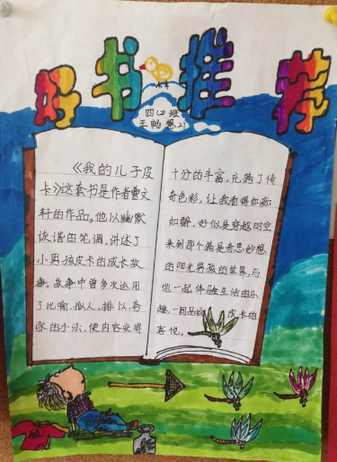 好书推荐
四(2)班
《我的儿子皮
卡》这套书是作者曹文
轩的作品。他以幽默
诙谐的笔调,讲述了
小男孩皮卡的成长故
事。故事中曾多次运用
了比喻、拟人、排比、夸
张的手法,使内容变得
十分的丰富,充满了传
奇色彩,让我看得如痴
如醉,好似是穿越时空
来到那个满是奇思妙想
的阳光男孩的世界,与
他一起体验生活的乐
趣,一同品味 皮卡的
喜悦。